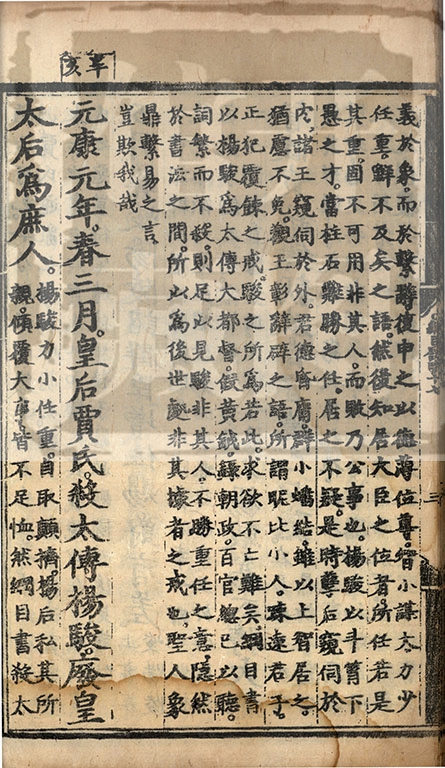 辛亥
義於象而於繫辭復申之以德薄位尊智小謀大力少
任重鮮不及矣之語然後知居大臣之位者所任若是
其重固不可用非其人而敗乃公事也楊駿以斗筲下
愚之才當柱石難勝之任居之不疑是時孽后窺伺於
內諸王窺伺於外君德寖庸群小蟠結雖以上智居之
猶應不免觀王彰辭辟之語所謂昵比小人疎遠君子
正犯覆餗之戒駿之所為若此求欲不亡難矣綱目書
以楊駿為太傅大都督假黃鉞錄朝政百官總已以聽
詞繁而不殺則足以見駿非其人不勝重任之意隱然
於書法之間所以為後世處非其據者之戒也聖人象
鼎繫易之言
豈欺我哉
元康元年春三月皇后賈氏殺太傅楊駿廢皇
太后為庶人
楊駿力小任重自取顛擠楊后私其所
親傾覆大事皆不足恤然綱目書殺太